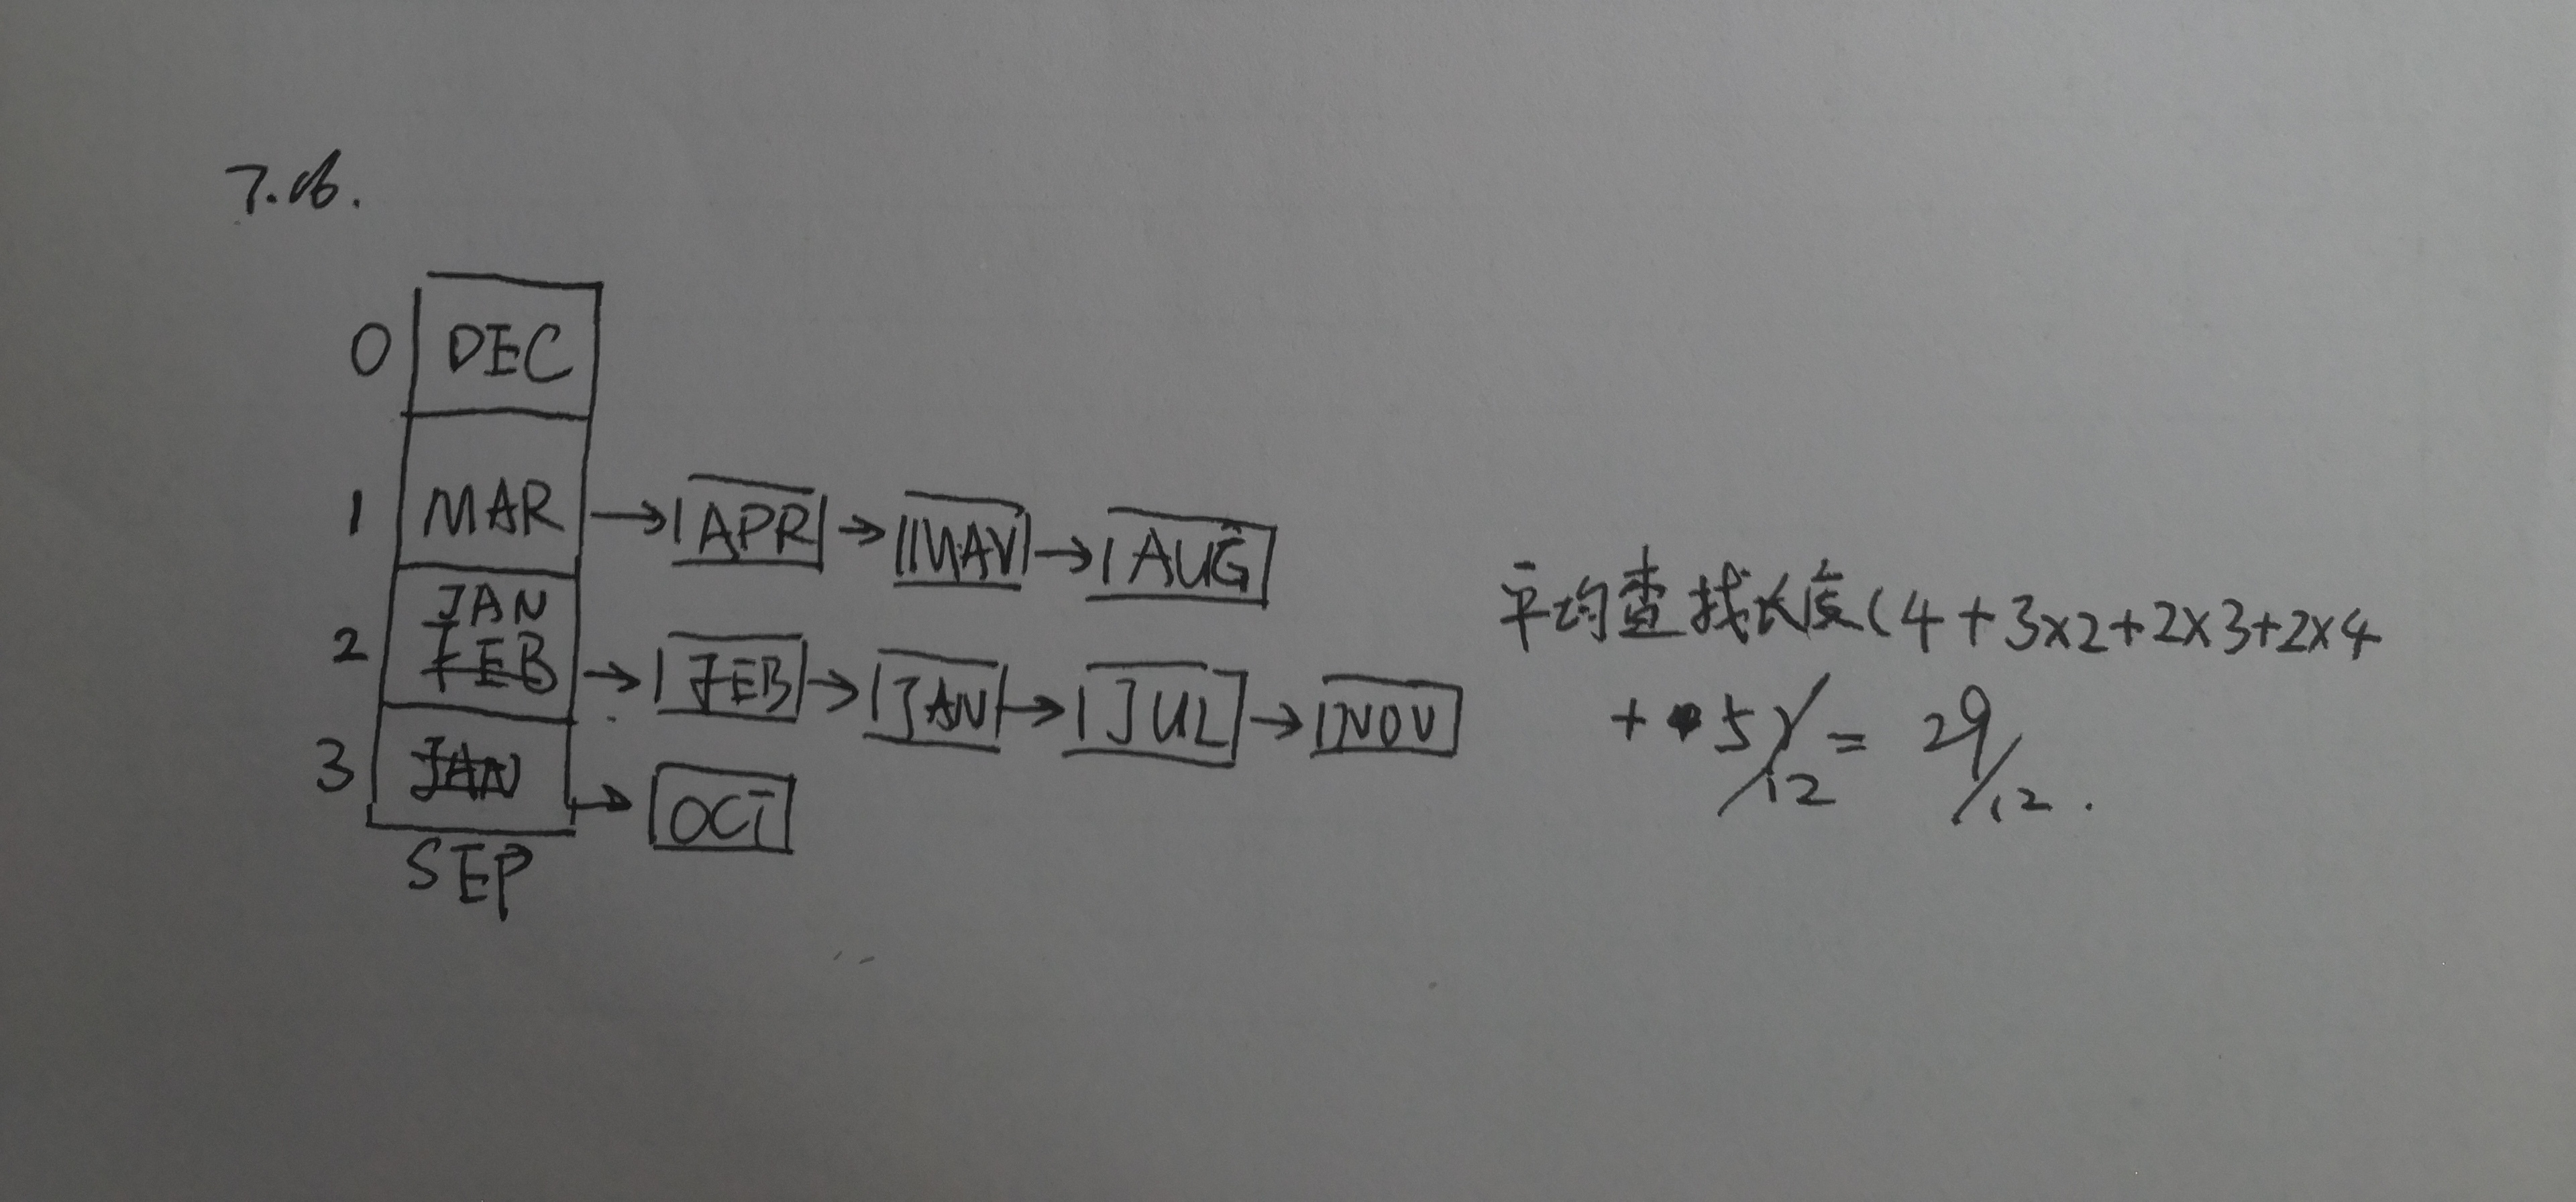 7.06.
0 DEC
1 MAR → APR → MAY → AUG
JAN
2 FEB → FEB → JAN → JUL → NOV
3 JAN → OCT
SEP
平均查找长度(4+3×2+2×3+2×4
+5)/12 = 29/12.